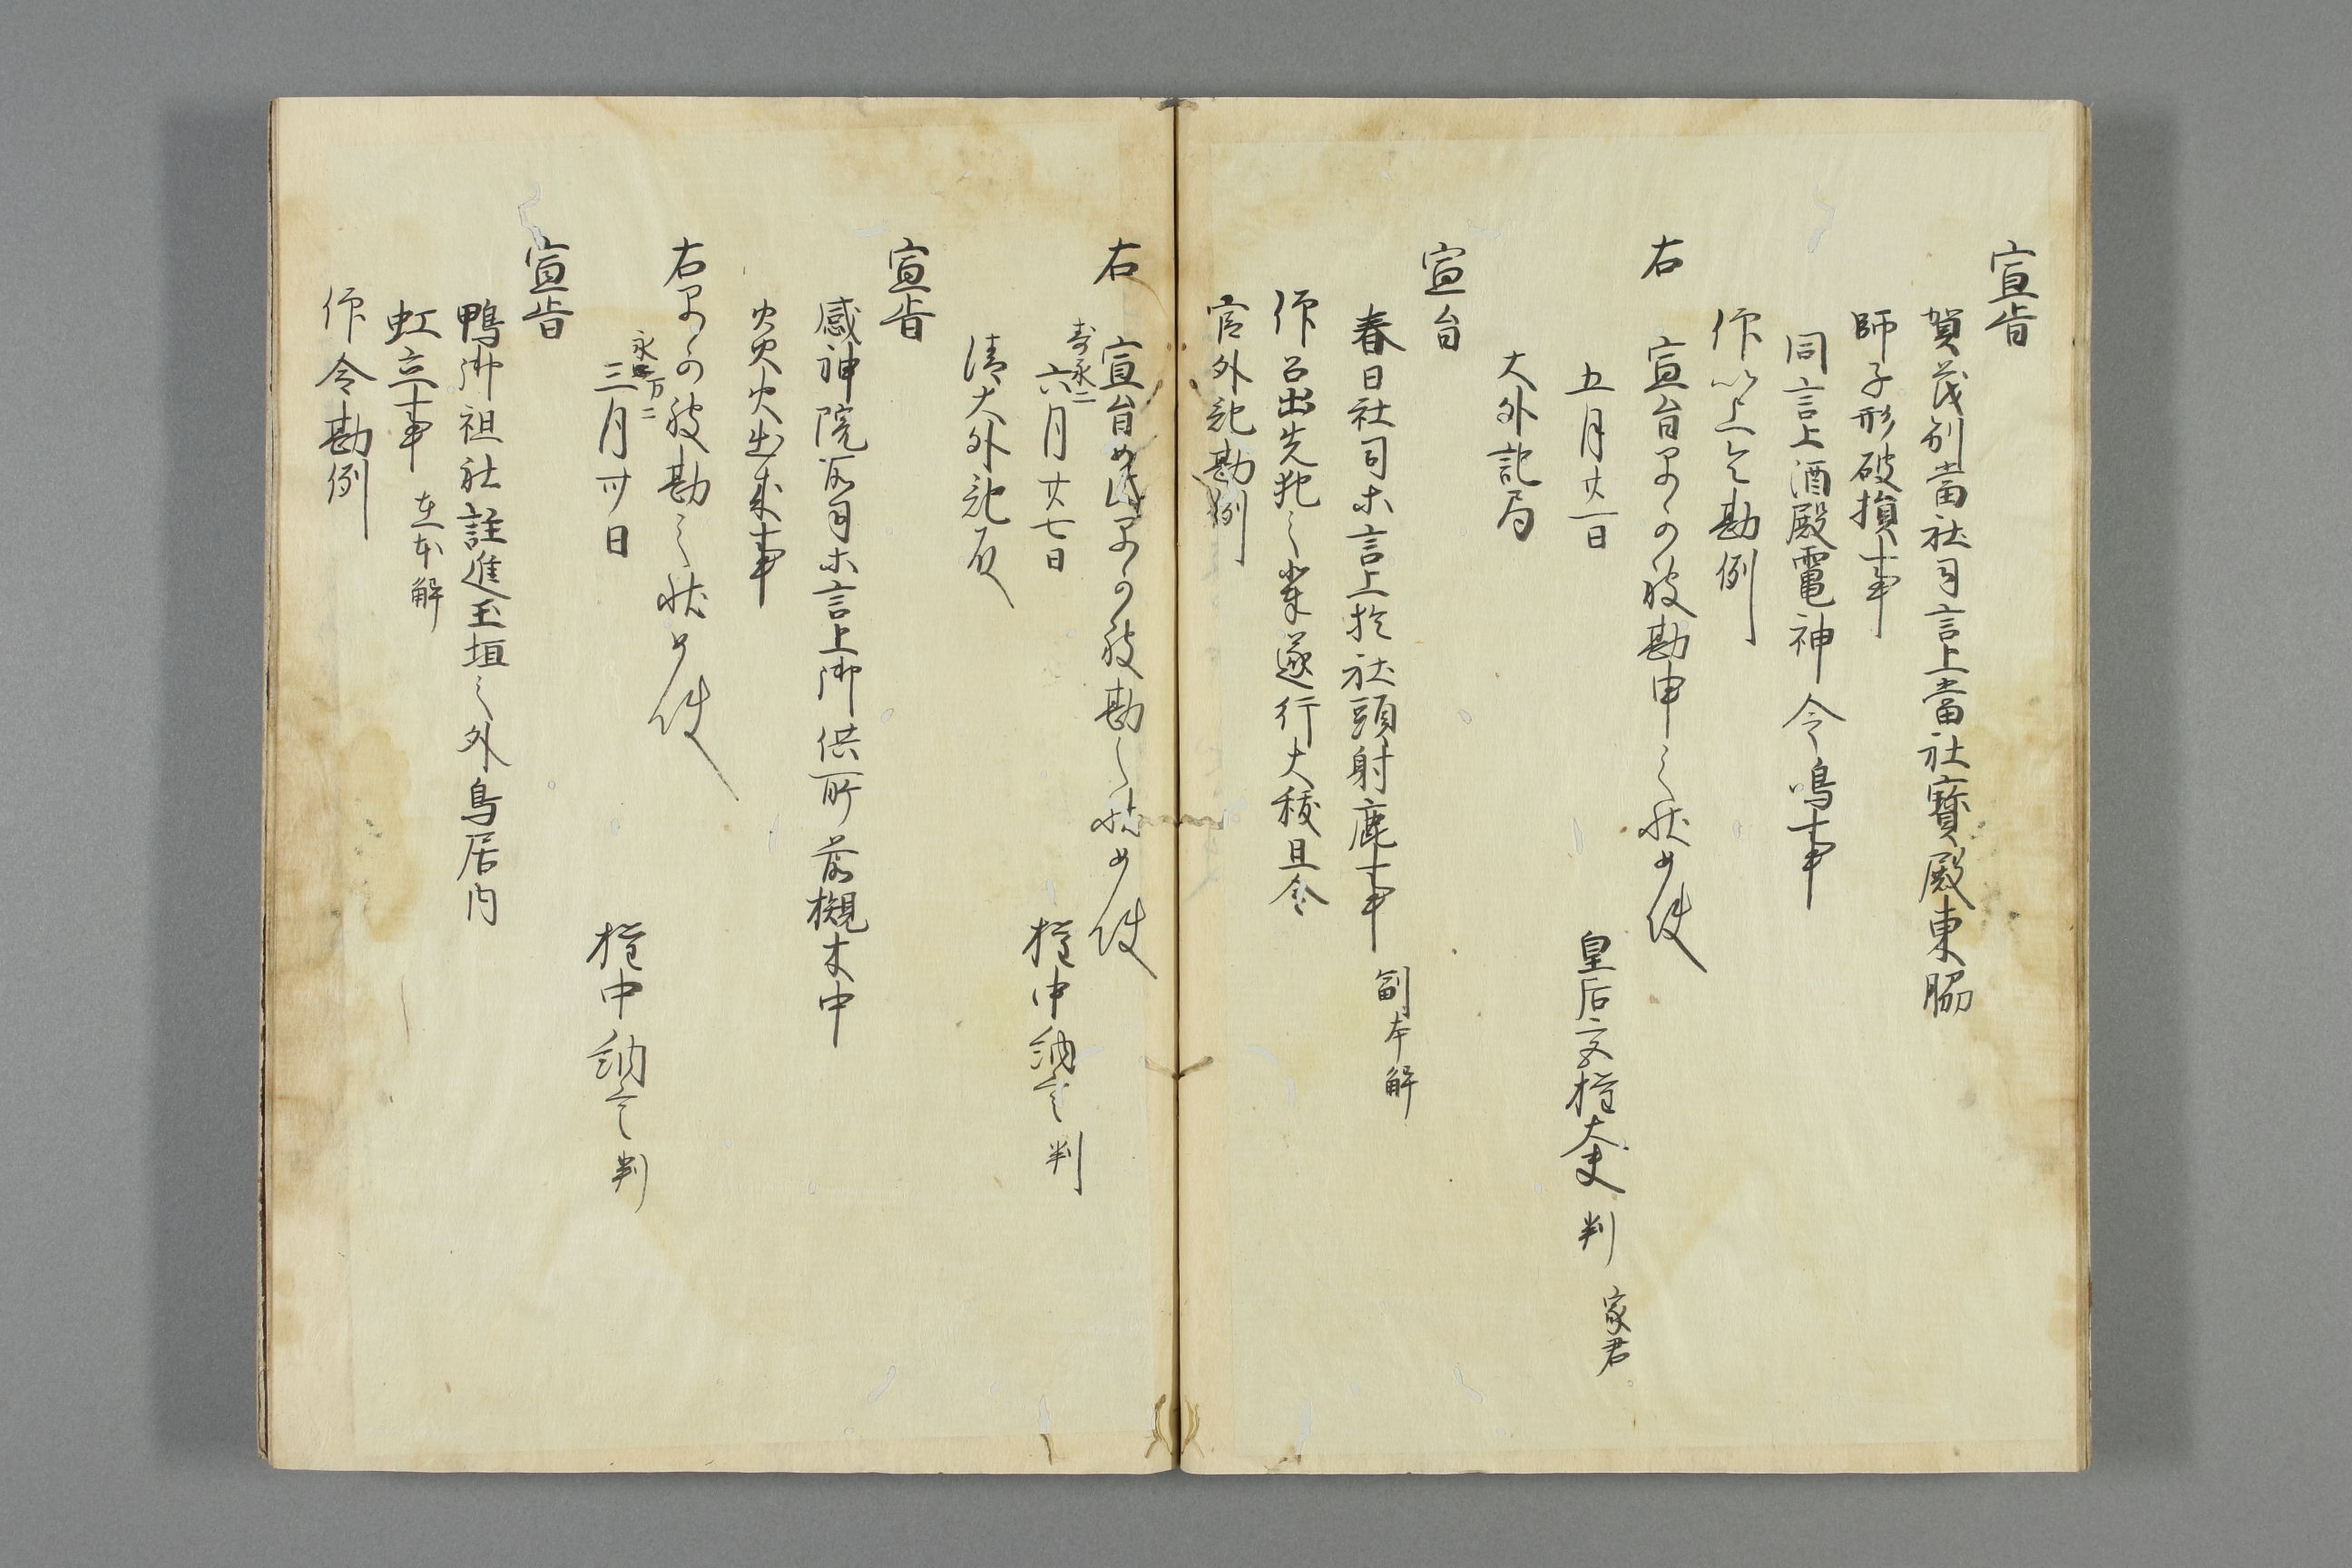 宣旨
賀茂別當社司言上當社寳殿東脇
師子形破損事
同言上酒殿竃神令鳴事
仰以上令勘例
右
宣旨早可被勘申之状如件
五月廿一日
皇后宮権大夫 判 家君
大外記局
宣旨
春日社司等言上於社頭射鹿事 副本解
仰召出先犯之輩遂行大祓且令
官外記勘例
右
宣旨如此早可被勘之状如件
壽永二
六月廿七日
権中納言 判
清大外記殿
宣旨
感神院所司等言上御供所前槻木中
火出来事
右早可被勘之状如件
永万二
三月廿日
権中納言 判
宣旨
鴨御祖社註進玉垣之外鳥居内
虹立事 在本解
仰令勘例